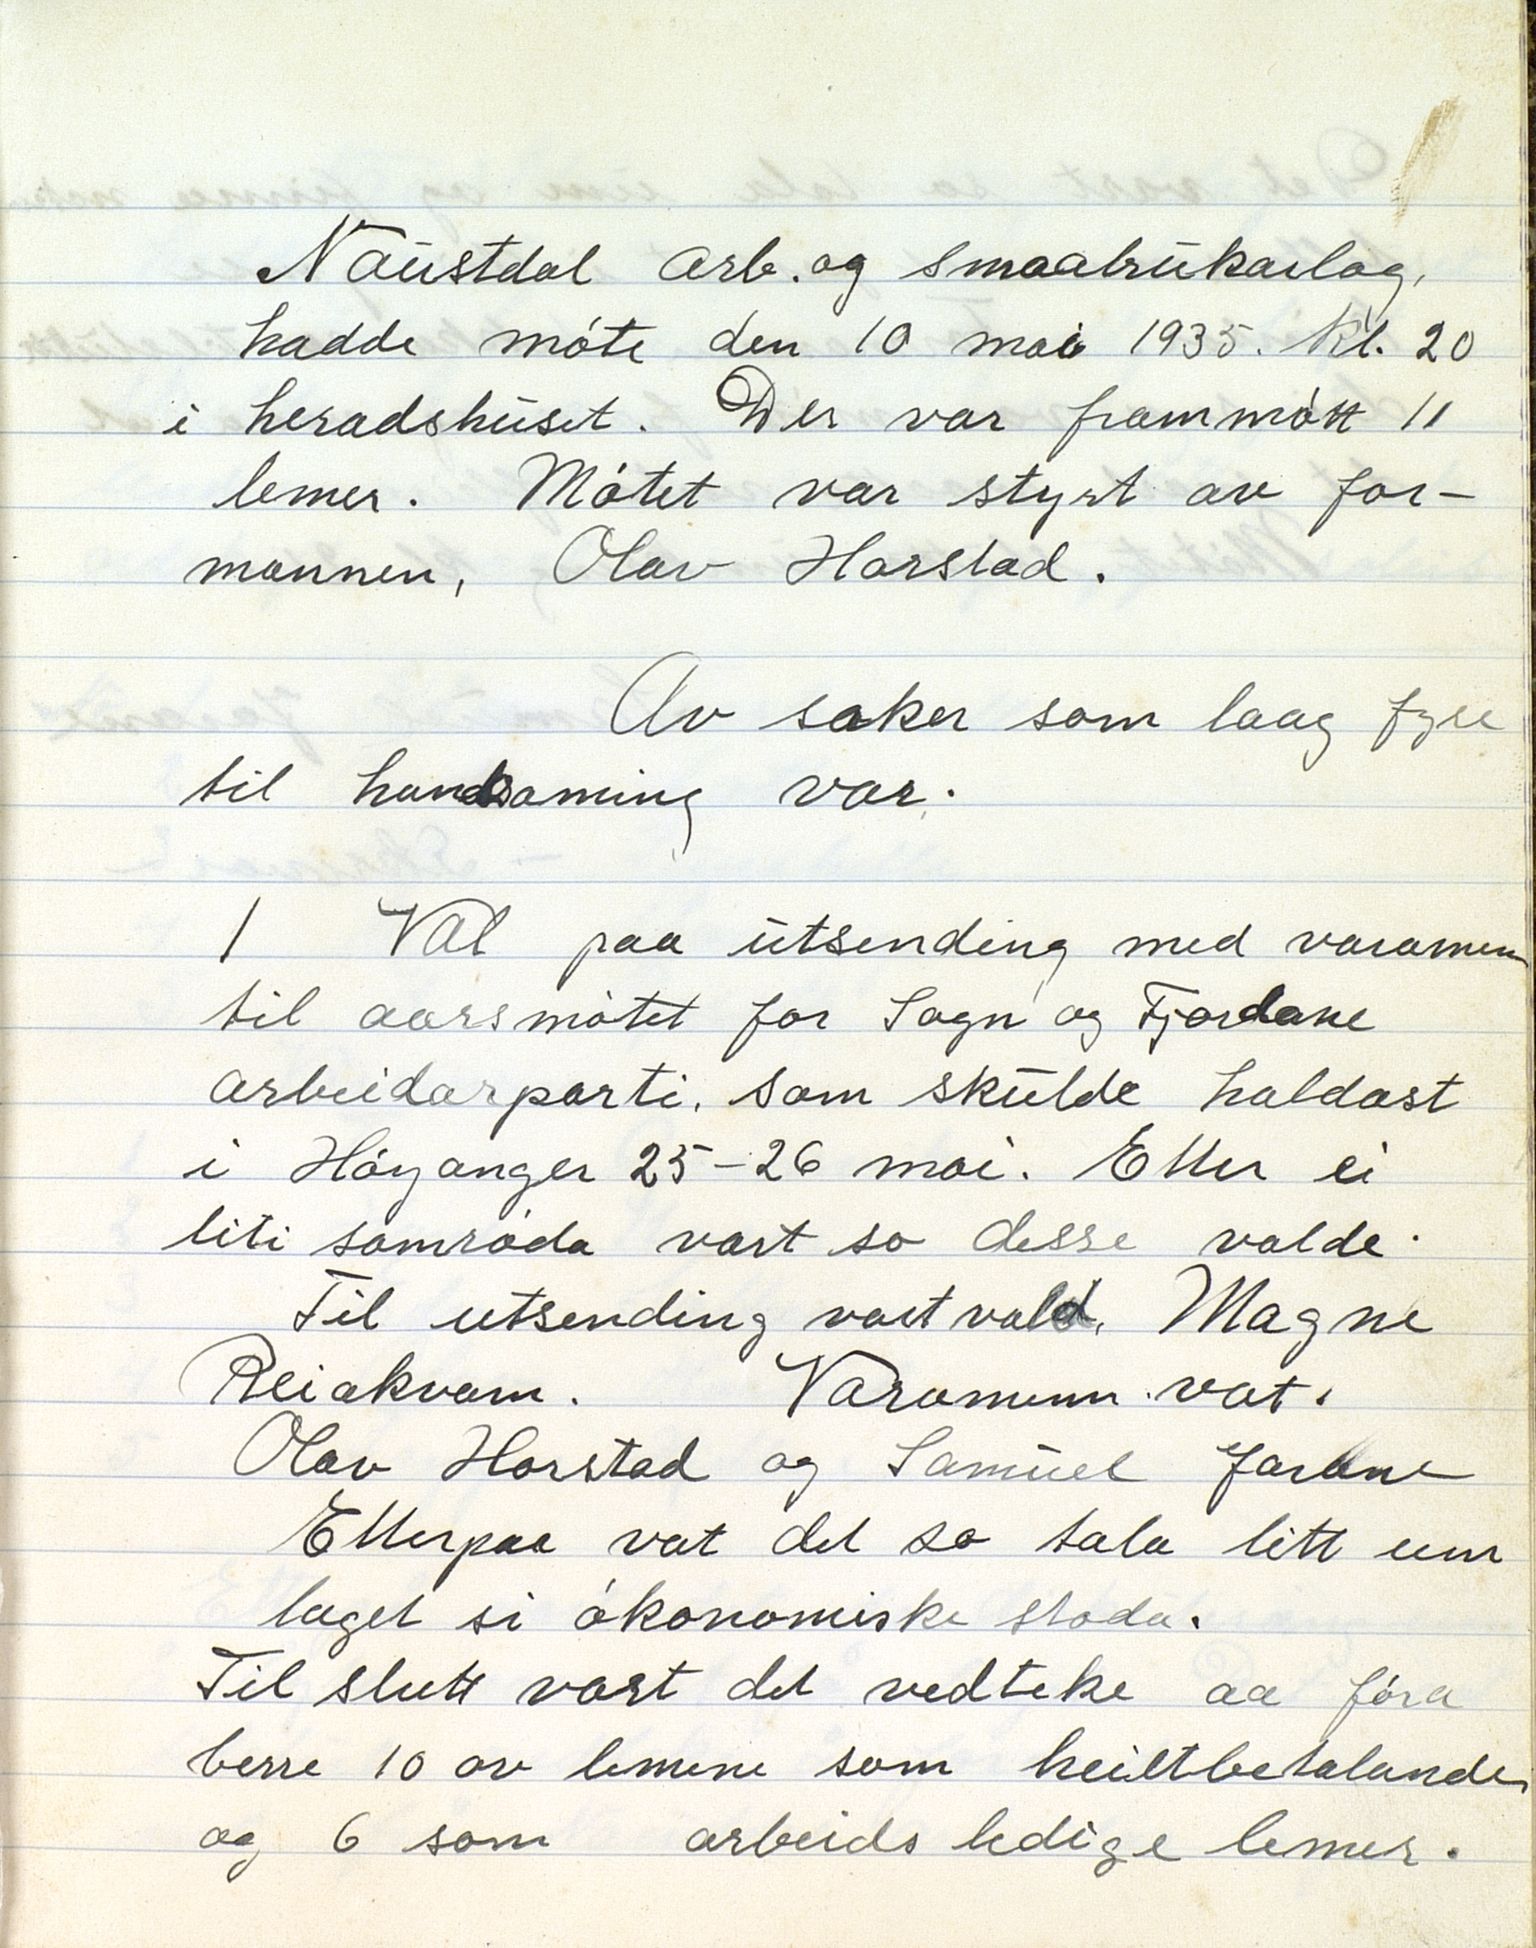 Naustdal Arb. og smaabrukarlag,
hadde móte den 10 mai 1935. Kl. 20
i heradshuset. Der var frammótt 11
lemer. Mótet var styrt av for-
mannen, Olav Horstad.
Av saker som laag fyre
til handsaming var:
1 Val paa utsending med varamenn
til aarsmótet for Sogn og Fjordane
arbeidarparti, som skulde haldast
i Hóyanger 25-26 mai. Etter ei
liti samróda vart so desse valde.
Til utsending vart vald, Magne
Reiakvam. Varamenn vat.
Olav Horstad og Samuel
Etterpaa vat det so tala litt um
laget si ókonomiske stóda.
Til slutt vart det vedteke aa fóra
berre 10 av lemene som heiltbetalande,
og 6 som arbeids ledige lemer.